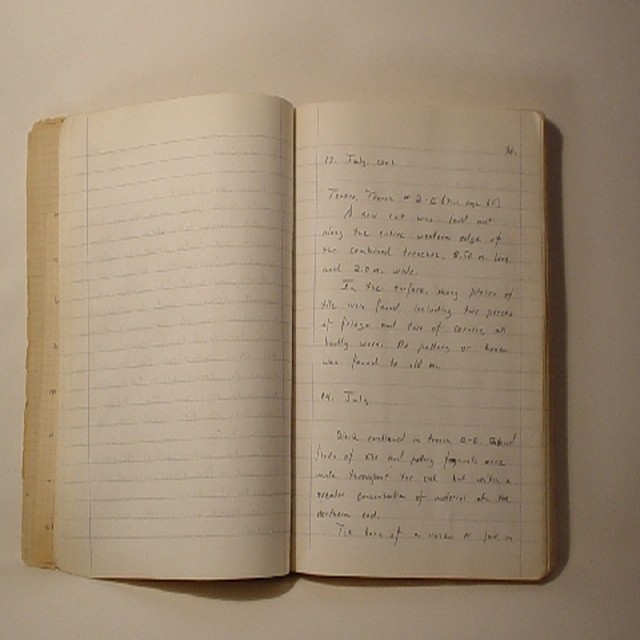 13. July, cont
A new cut was laid out
along the entire western edge of
the combined trenches, 8.50 m. long
and 2.0 m. wide.
In the surface, many pieces of
tile were found, including two pieces
of frieze and two of cornice, all
badly worn. No pottery or bronze
was found to
14. July
Work continued in trench
finds of tile and pottery fragments were
made throughout the cut but with a
greater concentration of material at the
northern end.
The base of a vase